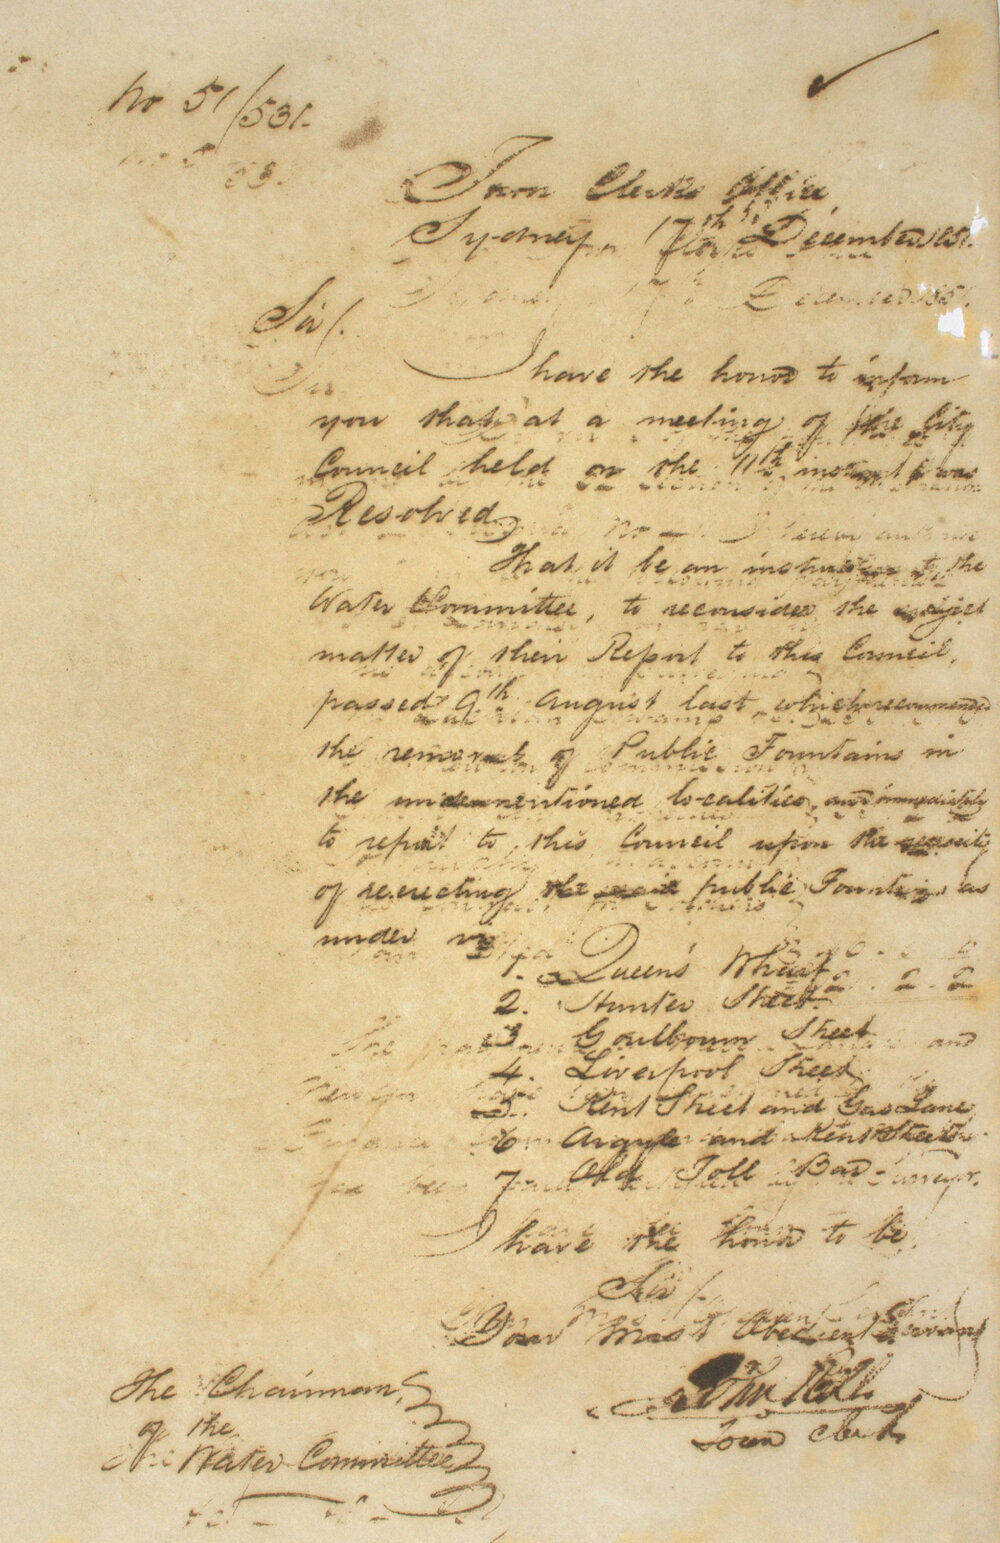 No 51/531.
Town Clerks Office
Sydney 17th December 1851.
Sir/.
I have the honor to inform
you that at a meeting of the City
Council held on the 11th instant it was
Resolved,
That it be an instruction to the
Water Committee, to reconsider the subject
matter of their Report to this Council,
passed 9th August last, which recommended
the removal of Public Fountains in
the undermentioned localities, and immediately
to report to this Council upon the necessity
of reerecting the said public Fountains as
under viz
1. Queen's Wharf
2. Hunter Street
3 Goulbourn Street
4. Liverpool Street
5. Kent Street and Gas Lane
6 Argyle and Kent Streets
7 Old Toll Bar
I have the honor to be,
Sir/.
Your Most Obedient Servant
John
Town Clerk
The Chairman
of the
Water Committee